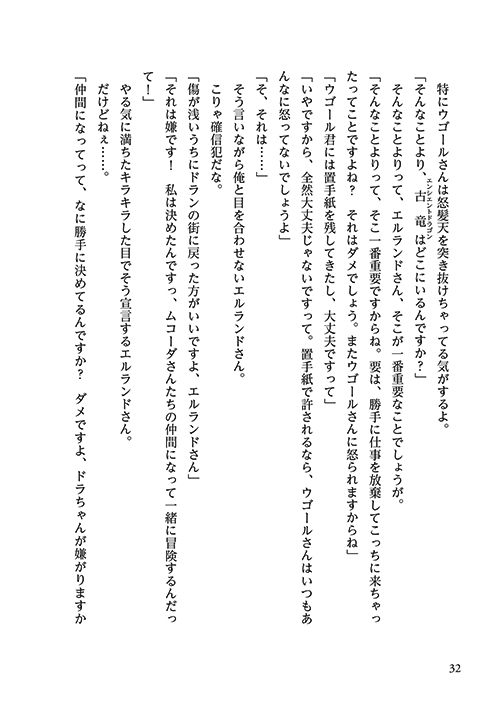 特にウゴールさんは怒髪天を突き抜けちゃってる気がするよ。
「そんなことより、古竜はどこにいるんですか？」
エンシェントドラゴン
そんなことよりって、エルランドさん、そこが一番重要なことでしょうが。
「そんなことよりって、そこ一番重要ですからね。要は、勝手に仕事を放棄してこっちに来ちゃっ
たってことですよね？　それはダメでしょう。またウゴールさんに怒られますからね」
「ウゴール君には置手紙を残してきたし、大丈夫ですって」
「いやですから、全然大丈夫じゃないですって。置手紙で許されるなら、ウゴールさんはいつもあ
んなに怒ってないでしょうよ」
「そ、それは……」
そう言いながら俺と目を合わせないエルランドさん。
こりゃ確信犯だな。
「傷が浅いうちにドランの街に戻った方がいいですよ、エルランドさん」
「それは嫌です！　私は決めたんですっ、ムコーダさんたちの仲間になって一緒に冒険するんだっ
て！」
やる気に満ちたキラキラした目でそう宣言するエルランドさん。
だけどねぇ……。
「仲間になってって、なに勝手に決めてるんですか？　ダメですよ、ドラちゃんが嫌がりますか
32